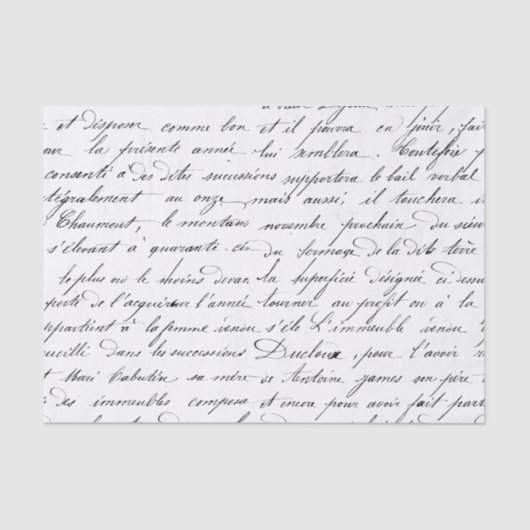 et disposer comme bon et il pourra en jouir, fai
la présente année lui semblera. Toutefois
consenti a des dites sucussions supportera le bail verbal
tégralement au onze, mais aussi; il touchera
Chaumont, le montans novembre prochain du sieur
s'élevant à quarante du formage de la dite terre
le plus ou le moins devan la superficie désignée ci dessu
porte de l'acquéreur l'année tourner au profit ou à la
ppartient à la femme vendu s'éle L'immeuble vendu
cueilli dans les successions Ducloux, pour l'avoir
Mari Cabutin sa mère de Antoine james son père
des immeubles composa et encore pour avoir fait part